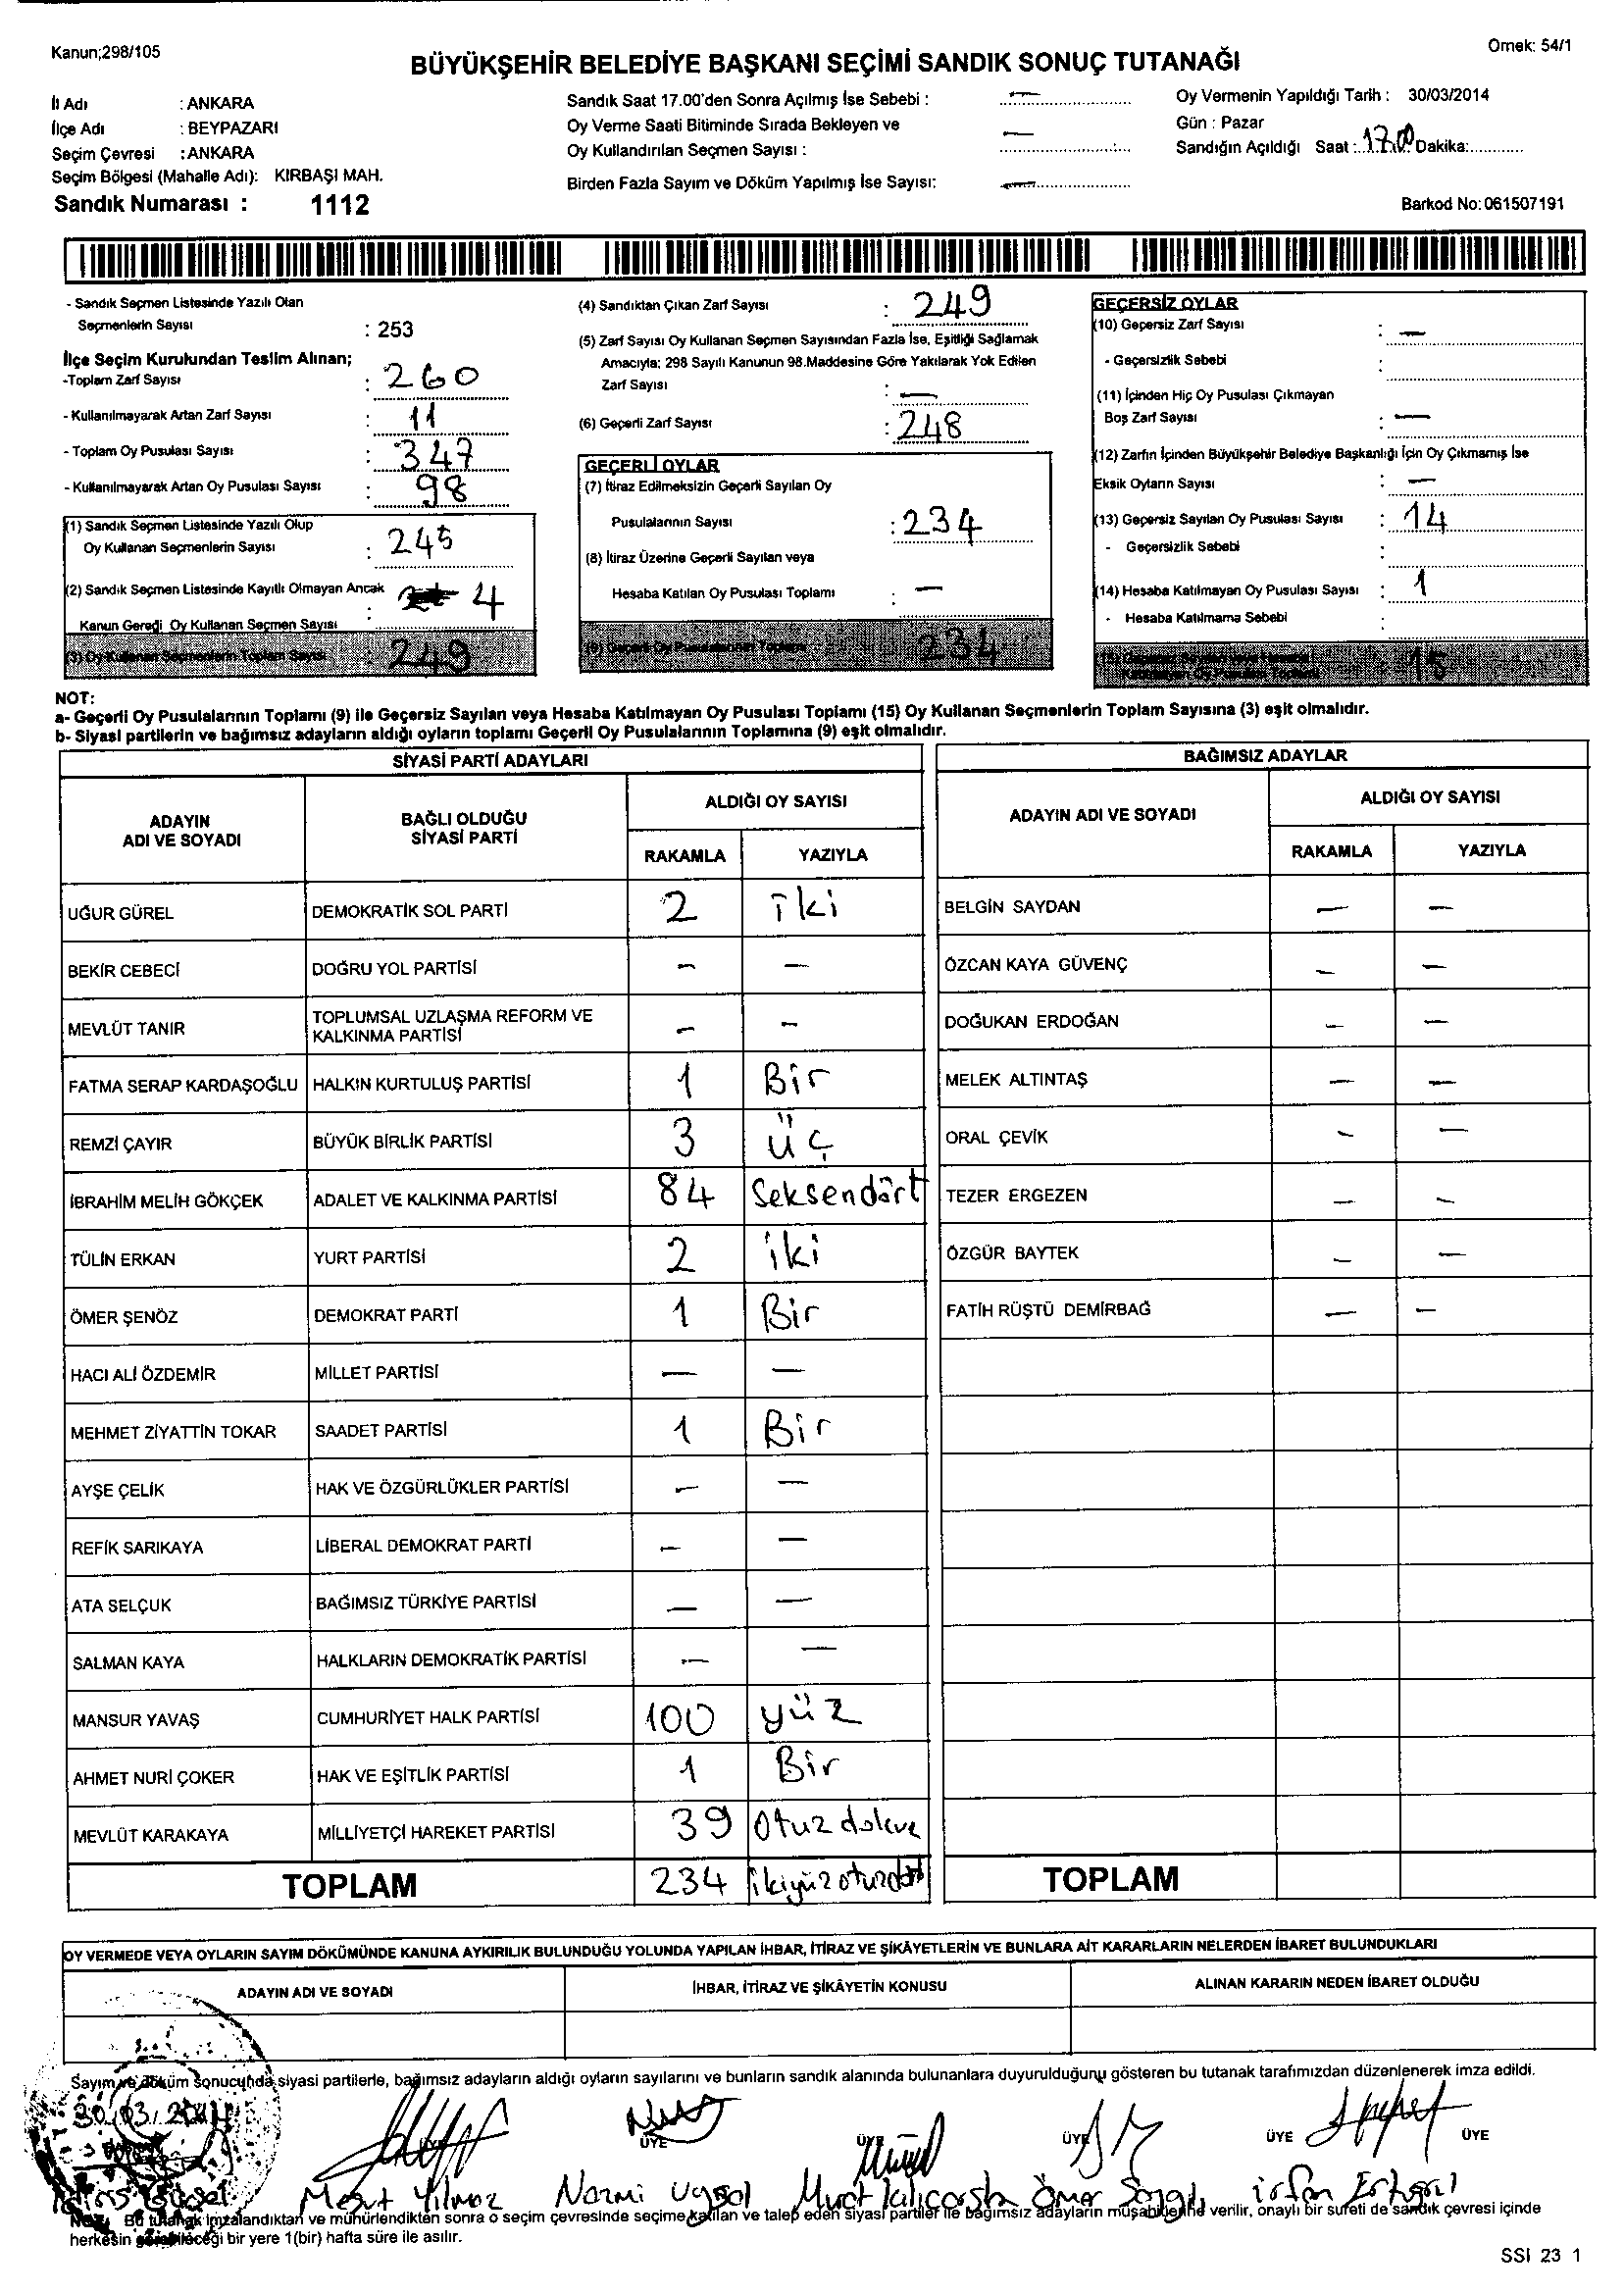 Kanun;298/105
Örnek: 54/1
BÜYÜKŞEHİR BELEDİYE BAŞKANI SEÇİMİ SANDIK SONUÇ TUTANAĞI
İl Adı : ANKARA
İlçe Adı : BEYPAZARI
Seçim Çevresi : ANKARA
Seçim Bölgesi (Mahalle Adı): KIRBAŞI MAH.
Sandık Numarası : 1112
Sandık Saat 17.00'den Sonra Açılmış İse Sebebi : —
Oy Verme Saati Bitiminde Sırada Bekleyen ve
Oy Kullandırılan Seçmen Sayısı : —
Birden Fazla Sayım ve Döküm Yapılmış İse Sayısı: —
Oy Vermenin Yapıldığı Tarih : 30/03/2014
Gün : Pazar
Sandığın Açıldığı Saat : 17.00 Dakika:............
Barkod No: 061507191
- Sandık Seçmen Listesinde Yazılı Olan
Seçmenlerin Sayısı : 253
İlçe Seçim Kurulundan Teslim Alınan;
-Toplam Zarf Sayısı : 260
- Kullanılmayarak Artan Zarf Sayısı : 11
- Toplam Oy Pusulası Sayısı : 347
- Kullanılmayarak Artan Oy Pusulası Sayısı : 98
(1) Sandık Seçmen Listesinde Yazılı Olup
Oy Kullanan Seçmenlerin Sayısı : 245
(2) Sandık Seçmen Listesinde Kayıtlı Olmayan Ancak
Kanun Gereği Oy Kullanan Seçmen Sayısı : 4
(3) Oy Kullanan Seçmenlerin Toplam Sayısı : 249
(4) Sandıktan Çıkan Zarf Sayısı : 249
(5) Zarf Sayısı Oy Kullanan Seçmen Sayısından Fazla İse, Eşitliği Sağlamak
Amacıyla; 298 Sayılı Kanunun 98.Maddesine Göre Yakılarak Yok Edilen
Zarf Sayısı : —
(6) Geçerli Zarf Sayısı : 248
GEÇERLİ OYLAR
(7) İtiraz Edilmeksizin Geçerli Sayılan Oy
Pusulalarının Sayısı : 234
(8) İtiraz Üzerine Geçerli Sayılan veya
Hesaba Katılan Oy Pusulası Toplamı : —
(9) Geçerli Oy Pusulalarının Toplamı : 234
GEÇERSİZ OYLAR
(10) Geçersiz Zarf Sayısı : —
- Geçersizlik Sebebi :
(11) İçinden Hiç Oy Pusulası Çıkmayan
Boş Zarf Sayısı : —
(12) Zarfın İçinden Büyükşehir Belediye Başkanlığı İçin Oy Çıkmamış İse
Eksik Oyların Sayısı : —
(13) Geçersiz Sayılan Oy Pusulası Sayısı : 14
- Geçersizlik Sebebi :
(14) Hesaba Katılmayan Oy Pusulası Sayısı : 1
- Hesaba Katılmama Sebebi :
(15) Geçersiz Sayılan veya Hesaba
Katılmayan Oy Pusulası Toplamı : 15
NOT:
a- Geçerli Oy Pusulalarının Toplamı (9) ile Geçersiz Sayılan veya Hesaba Katılmayan Oy Pusulası Toplamı (15) Oy Kullanan Seçmenlerin Toplam Sayısına (3) eşit olmalıdır.
b- Siyasi partilerin ve bağımsız adayların aldığı oyların toplamı Geçerli Oy Pusulalarının Toplamına (9) eşit olmalıdır.
SİYASİ PARTİ ADAYLARI
ADAYIN
ADI VE SOYADI
BAĞLI OLDUĞU
SİYASİ PARTİ
ALDIĞI OY SAYISI
RAKAMLA YAZIYLA
UĞUR GÜREL DEMOKRATİK SOL PARTİ 2 iki
BEKİR CEBECİ DOĞRU YOL PARTİSİ — —
MEVLÜT TANIR TOPLUMSAL UZLAŞMA REFORM VE
KALKINMA PARTİSİ — —
FATMA SERAP KARDAŞOĞLU HALKIN KURTULUŞ PARTİSİ 1 Bir
REMZİ ÇAYIR BÜYÜK BİRLİK PARTİSİ 3 üç
İBRAHİM MELİH GÖKÇEK ADALET VE KALKINMA PARTİSİ 84 Seksendört
TÜLİN ERKAN YURT PARTİSİ 2 iki
ÖMER ŞENÖZ DEMOKRAT PARTİ 1 Bir
HACI ALİ ÖZDEMİR MİLLET PARTİSİ — —
MEHMET ZİYATTİN TOKAR SAADET PARTİSİ 1 Bir
AYŞE ÇELİK HAK VE ÖZGÜRLÜKLER PARTİSİ — —
REFİK SARIKAYA LİBERAL DEMOKRAT PARTİ — —
ATA SELÇUK BAĞIMSIZ TÜRKİYE PARTİSİ — —
SALMAN KAYA HALKLARIN DEMOKRATİK PARTİSİ — —
MANSUR YAVAŞ CUMHURİYET HALK PARTİSİ 100 yüz
AHMET NURİ ÇOKER HAK VE EŞİTLİK PARTİSİ 1 Bir
MEVLÜT KARAKAYA MİLLİYETÇİ HAREKET PARTİSİ 39 Otuz dokuz
TOPLAM 234 ikiyüzotuzdört
BAĞIMSIZ ADAYLAR
ADAYIN ADI VE SOYADI
ALDIĞI OY SAYISI
RAKAMLA YAZIYLA
BELGİN SAYDAN — —
ÖZCAN KAYA GÜVENÇ — —
DOĞUKAN ERDOĞAN — —
MELEK ALTINTAŞ — —
ORAL ÇEVİK — —
TEZER ERGEZEN — —
ÖZGÜR BAYTEK — —
FATİH RÜŞTÜ DEMİRBAĞ — —
TOPLAM
OY VERMEDE VEYA OYLARIN SAYIM DÖKÜMÜNDE KANUNA AYKIRILIK BULUNDUĞU YOLUNDA YAPILAN İHBAR, İTİRAZ VE ŞİKÂYETLERİN VE BUNLARA AİT KARARLARIN NELERDEN İBARET BULUNDUKLARI
ADAYIN ADI VE SOYADI
İHBAR, İTİRAZ VE ŞİKÂYETİN KONUSU
ALINAN KARARIN NEDEN İBARET OLDUĞU
Sayım ve döküm sonucunda siyasi partilerle, bağımsız adayların aldığı oyların sayılarını ve bunların sandık alanında bulunanlara duyurulduğunu gösteren bu tutanak tarafımızdan düzenlenerek imza edildi.
30.03.2014
ÜYE ÜYE ÜYE ÜYE ÜYE ÜYE
Mesut Yılmaz Nazmi Uysal Murat Kılıçarslan Ömer irfan
NOT: Bu tutanak imzalandıktan ve mühürlendikten sonra o seçim çevresinde seçime katılan ve talep eden siyasi partiler ile bağımsız adayların müşahitlerine verilir, onaylı bir sureti de sandık çevresi içinde
herkesin görebileceği bir yere 1(bir) hafta süre ile asılır.
SSI 23 1